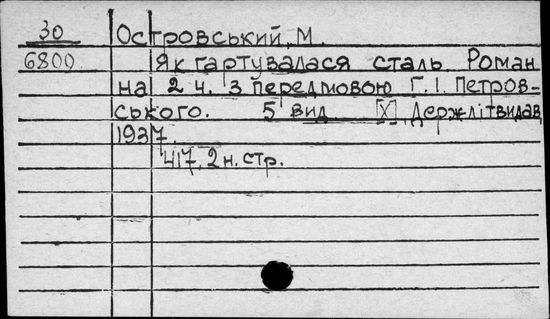 30 Островський, М.
6800 Як гартувалася сталь. Роман
на 2 ч. З передмовою Г. І. Петров-
ського. 5 вид. [Х], Держлітвидав
1937.
417, 2 н. стр.